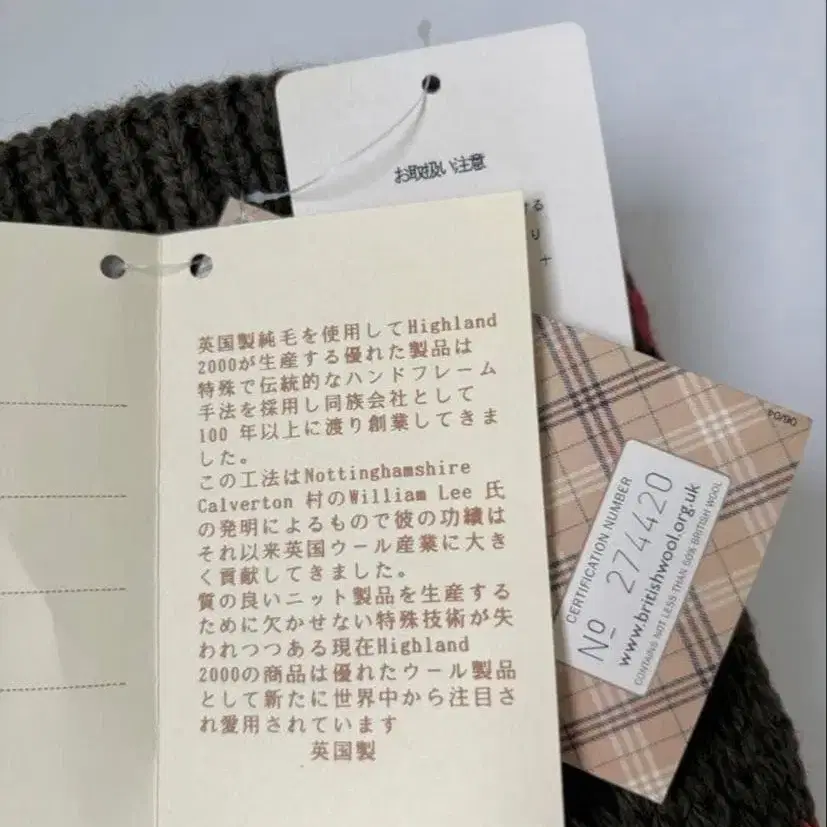 お取扱い注意
る
り
十
英国製純毛を使用してHighland
2000が生産する優れた製品は
特殊で伝統的なハンドフレーム
手法を採用し同族会社として
100 年以上に渡り創業してきま
した。
この工法はNottinghamshire
Calverton 村のWilliam Lee 氏
の発明によるもので彼の功績は
それ以来英国ウール産業に大き
く貢献してきました。
質の良いニット製品を生産する
ために欠かせない特殊技術が失
われつつある現在Highland
2000の商品は優れたウール製品
として新たに世界中から注目さ
れ愛用されています
英国製
06/04
CERTIFICATION NUMBER
No 274420
www.britishwool.org.uk
CONTAINS NOT LESS THAN 50% BRITISH WOOL